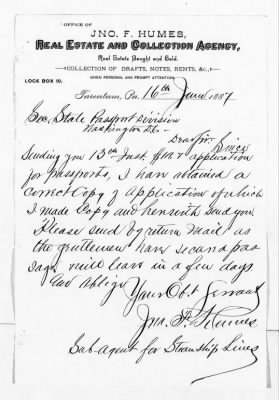 OFFICE OF
JNO. F. HUMES,
REAL ESTATE AND COLLECTION AGENCY,
Real Estate Bought and Sold.
COLLECTION OF DRAFTS, NOTES, RENTS, &c.,
GIVEN PERSONAL AND PROMPT ATTENTION.
LOCK BOX 10.
Tarentum, Pa. 16th June 1887
Sec. State Passport Division
Washington D.C. -
Dear Sir, Since
Sending you 13th Inst application
for passports, I have retained a
correct Copy of application of which
I made Copy and herewith send you.
Please send by return mail as
the gentlemen have secured pas
sage & will leave in a few days
and oblige
Your Obt Servant
Jno. F. Humes
Sub-agent for Steamship Lines